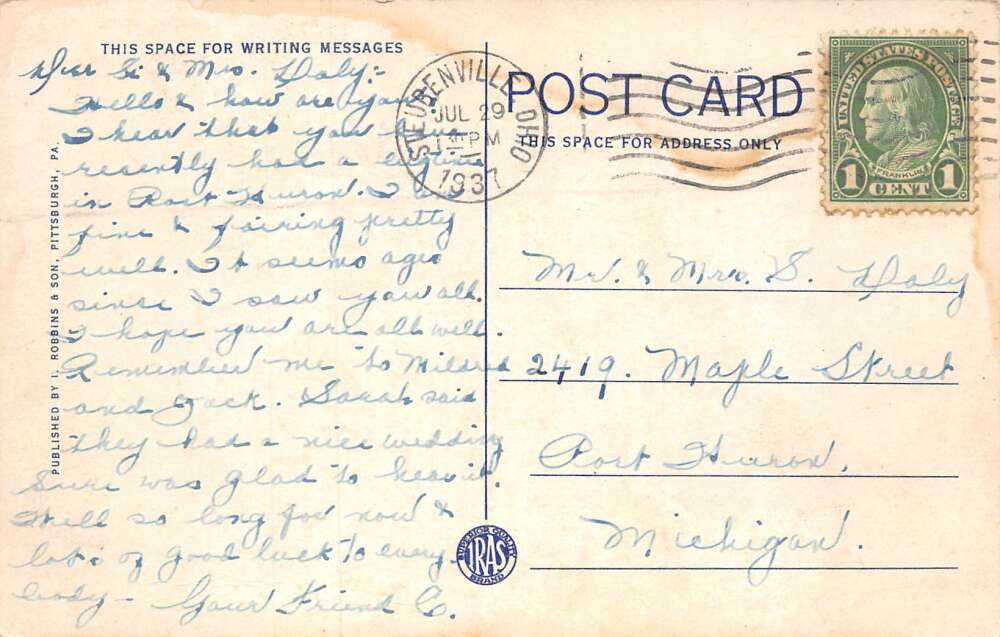 THIS SPACE FOR WRITING MESSAGES
Dear Si & Mrs. Daly:-
Hello & how are you.
I hear that you have
recently had a
in Port Huron. I am
fine & fairing pretty
well. It seems ages
since I saw you all.
I hope you are all well.
Remember me to Mildred
and Jack. Sarah said
they had a nice wedding
Sure was glad to hear it.
Well so long for now &
lots of good luck to every
body - Your Friend C.
PUBLISHED BY I. ROBBINS & SON, PITTSBURGH, PA.
STEUBENVILLE, OHIO
JUL 29
1 30 PM
1937
POST CARD
THIS SPACE FOR ADDRESS ONLY
UNITED STATES POSTAGE
FRANKLIN
1 CENT 1
Mr. & Mrs. S. Daly
2419. Maple Street
Port Huron,
Michigan.
SUPERIOR QUALITY
IRAS
BRAND